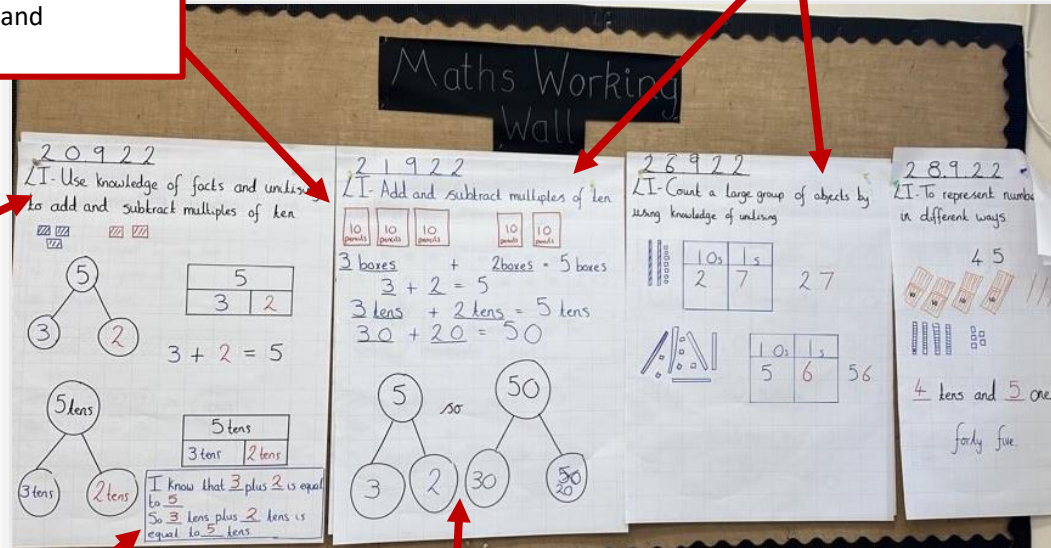 and
Maths Working
Wall
20922
LI- Use knowledge of facts and
to add and subtract multiples of ten
5
3 2
5
3 2
3 + 2 = 5
5 tens
3 tens 2 tens
5 tens
3 tens 2 tens
I know that 3 plus 2 is equal
to 5
So 3 tens plus 2 tens is
equal to 5 tens
21922
LI- Add and subtract multiples of ten
10 10 10 10 10
pencils pencils pencils pencils pencils
3 boxes + 2boxes = 5 boxes
3 + 2 = 5
3 tens + 2 tens = 5 tens
30 + 20 = 50
5 so 50
3 2 30 20
26922
LI- Count a large group of objects by
using knowledge of unitising
10s 1s
2 7 27
10s 1s
5 6 56
28.9.22
LI- To represent numbe
in different ways
45
10 10 10 10
4 tens and 5 one
forty five.